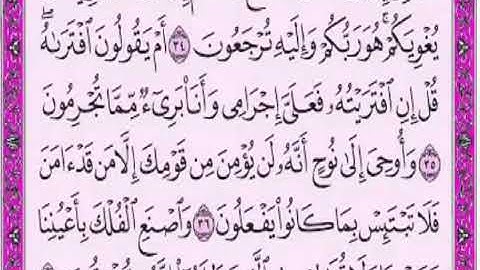 يُغْوِيَكُمْ ۚ هُوَ رَبُّكُمْ وَإِلَيْهِ تُرْجَعُونَ ٣٤ أَمْ يَقُولُونَ ٱفْتَرَىٰهُ ۖ
قُلْ إِنِ ٱفْتَرَيْتُهُۥ فَعَلَىَّ إِجْرَامِى وَأَنَا۠ بَرِىٓءٌ مِّمَّا تُجْرِمُونَ
٣٥ وَأُوحِىَ إِلَىٰ نُوحٍ أَنَّهُۥ لَن يُؤْمِنَ مِن قَوْمِكَ إِلَّا مَن قَدْ ءَامَنَ
فَلَا تَبْتَئِسْ بِمَا كَانُوا۟ يَفْعَلُونَ ٣٦ وَٱصْنَعِ ٱلْفُلْكَ بِأَعْيُنِنَا